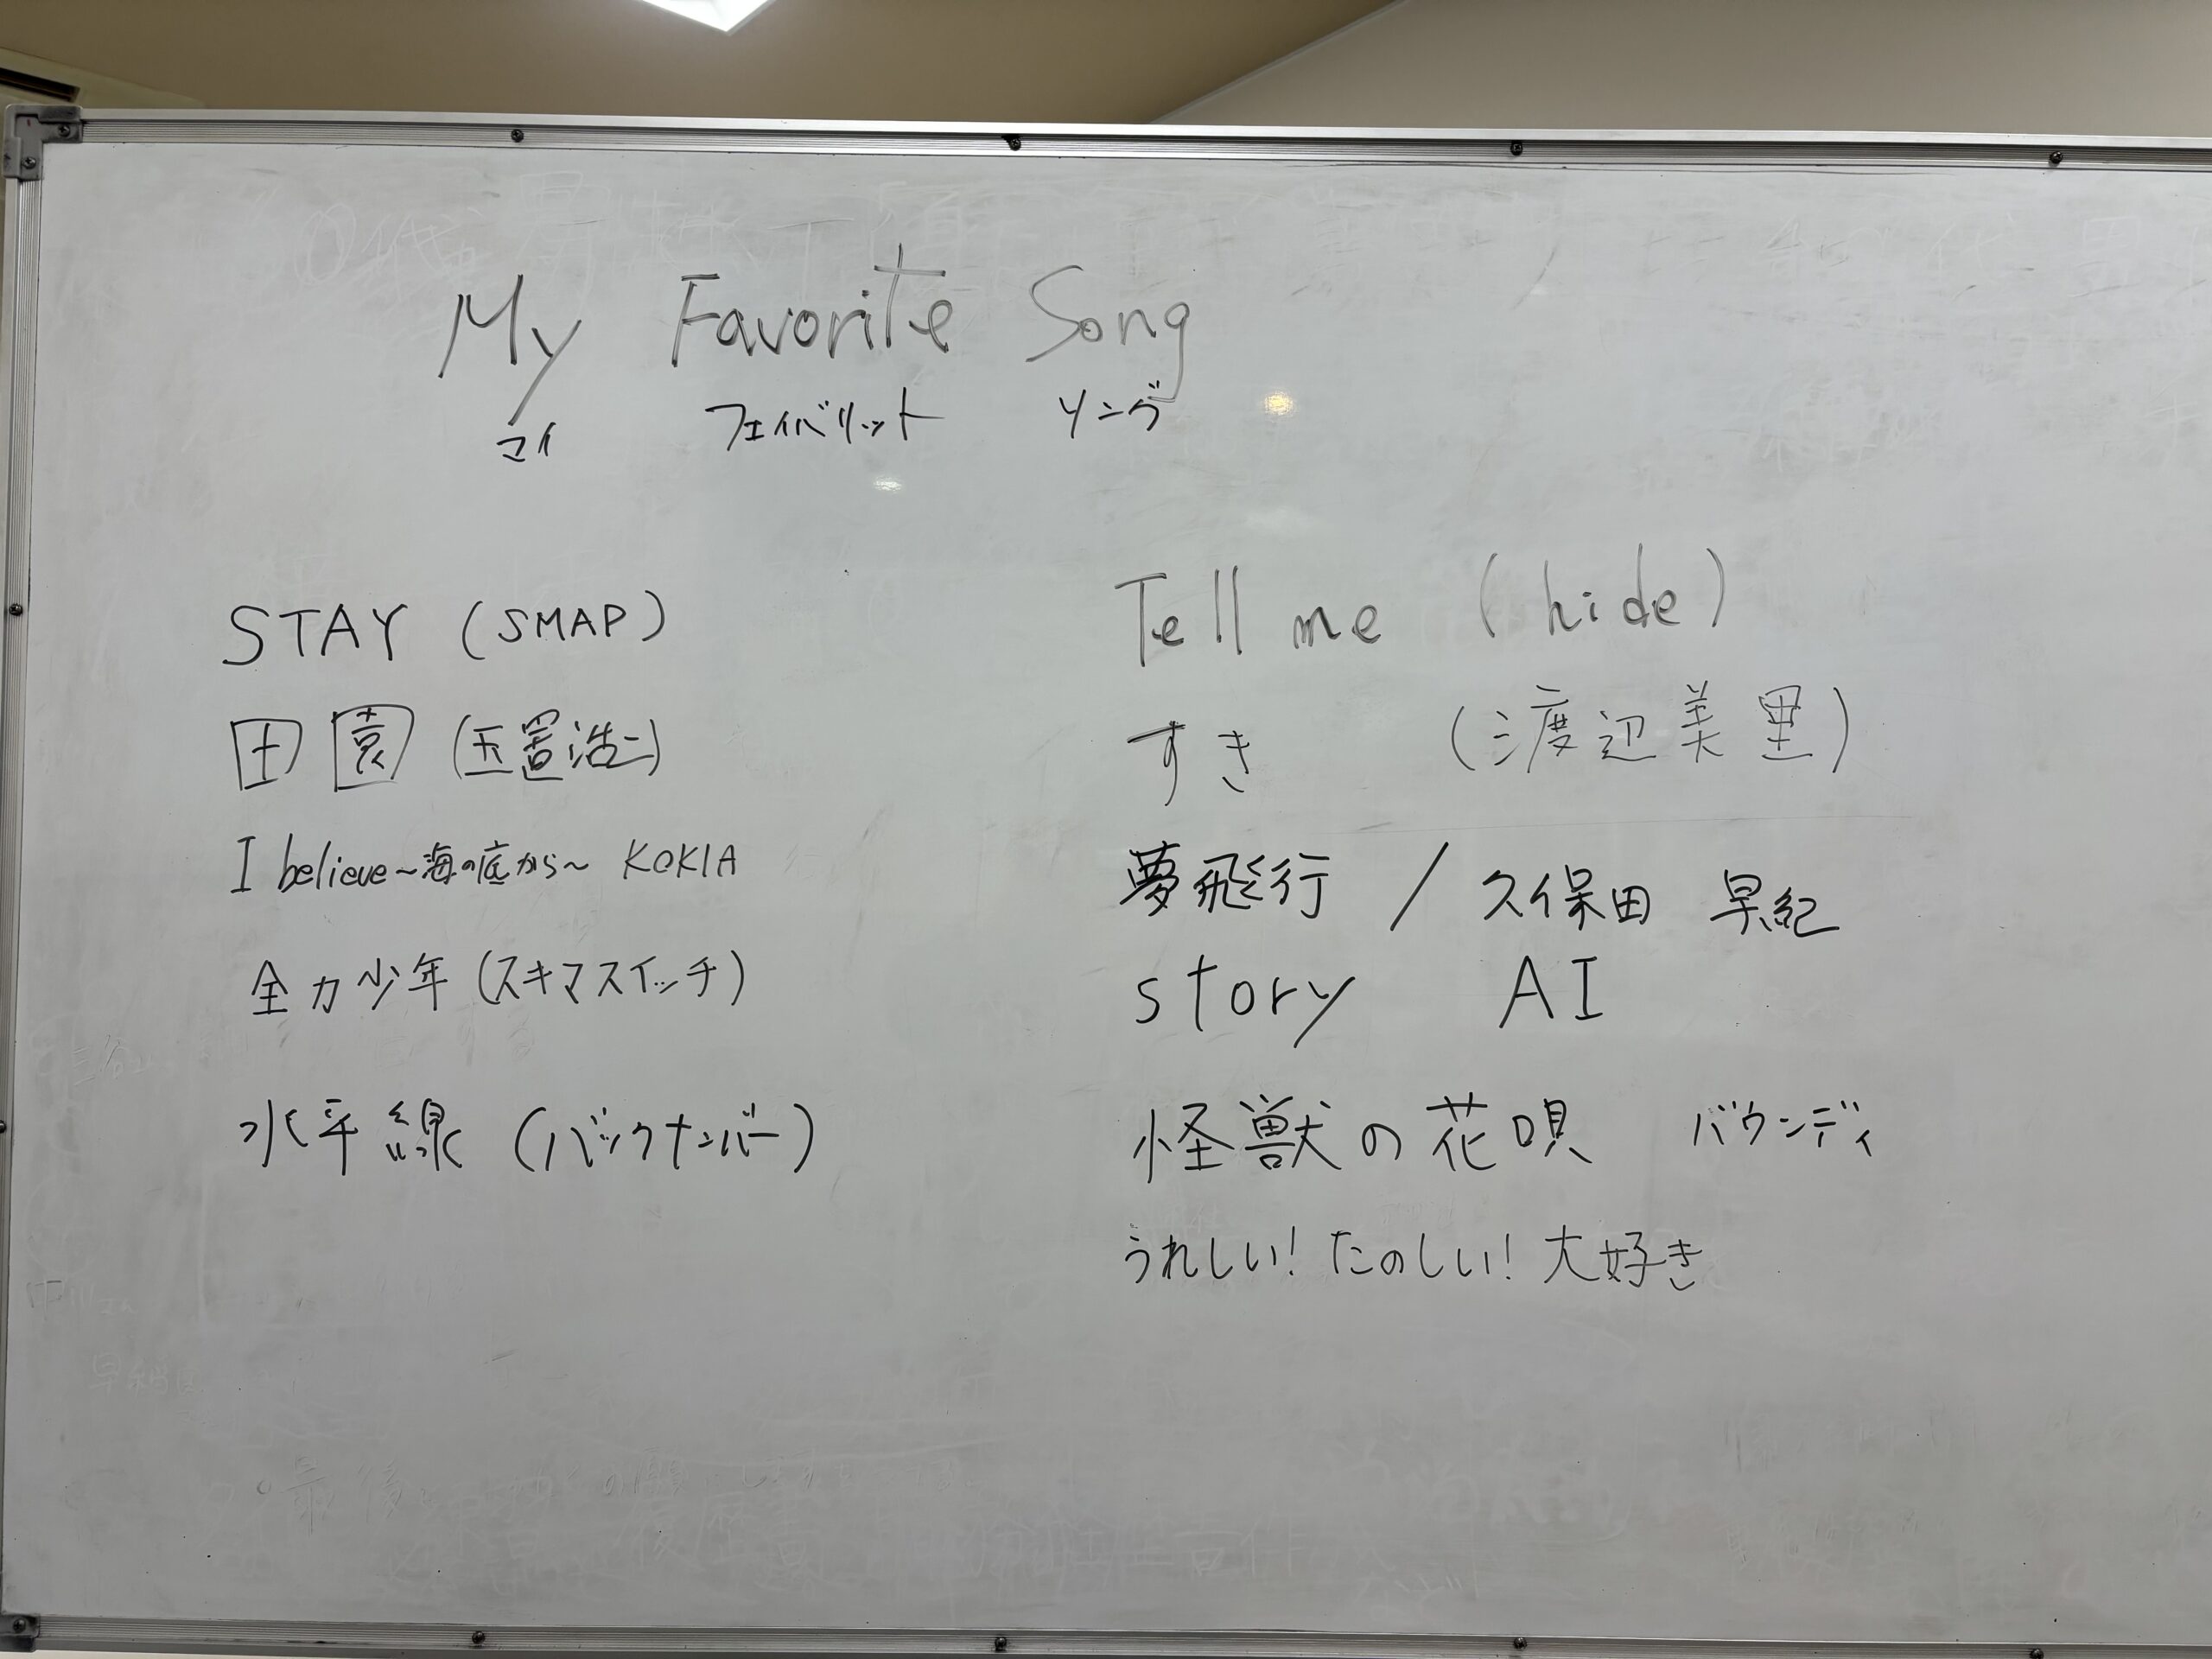 My Favorite Song
マイ フェイバリット ソング
STAY (SMAP)
田園 (玉置浩二)
I believe~海の底から~ KOKIA
全力少年 (スキマスイッチ)
水平線 (バックナンバー)
Tell me (hide)
すき (渡辺美里)
夢飛行 / 久保田 早紀
story AI
怪獣の花唄 バウンディ
うれしい! たのしい! 大好き